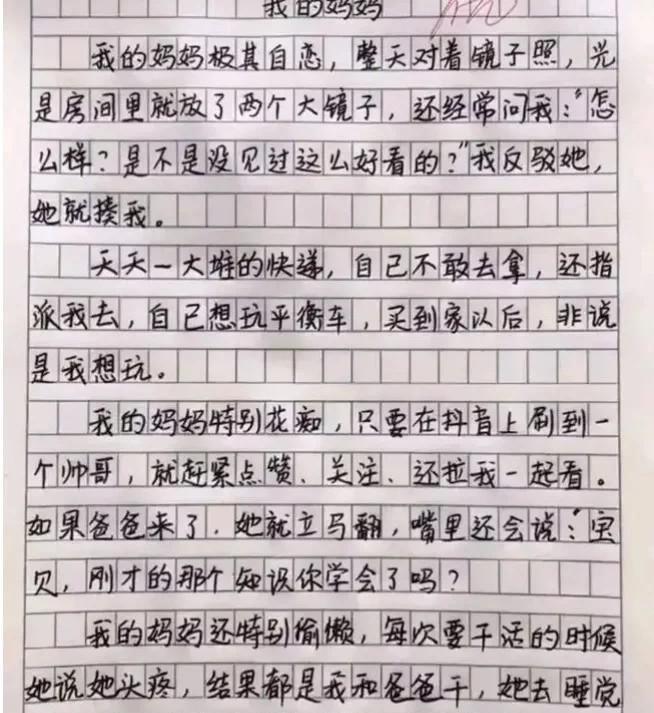 我的妈妈
我的妈妈极其自恋，整天对着镜子照，光
是房间里就放了两个大镜子，还经常问我：“怎
么样？是不是没见过这么好看的？”我反驳她，
她就揍我。
天天一大堆的快递，自己不敢去拿，还指
派我去，自己想玩平衡车，买到家以后，非说
是我想玩。
我的妈妈特别花痴，只要在抖音上刷到一
个帅哥，就赶紧点赞、关注、还拉我一起看。
如果爸爸来了．她就立马翻，嘴里还会说：“宝
贝，刚才的那个知识你学会了吗？
我的妈妈还特别偷懒，每次要干活的时候
她说她头疼，结果都是我和爸爸干，她去睡觉